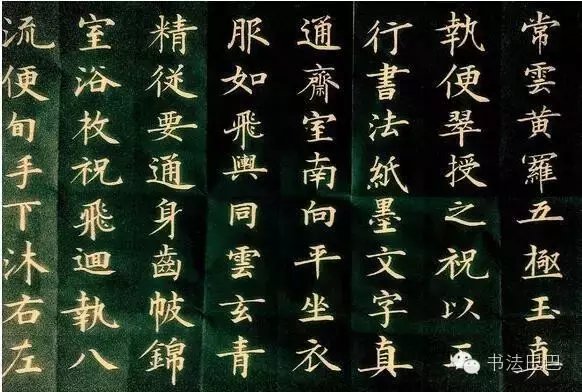 常雲黃羅五極玉真
執便翠授之祝以
行書法紙墨文字真
通齋室南向平坐衣
服如飛輿同雲玄青
精従要通身齒帔錦
室浴枚祝飛迴執八
流便旬手下沐右左
书法